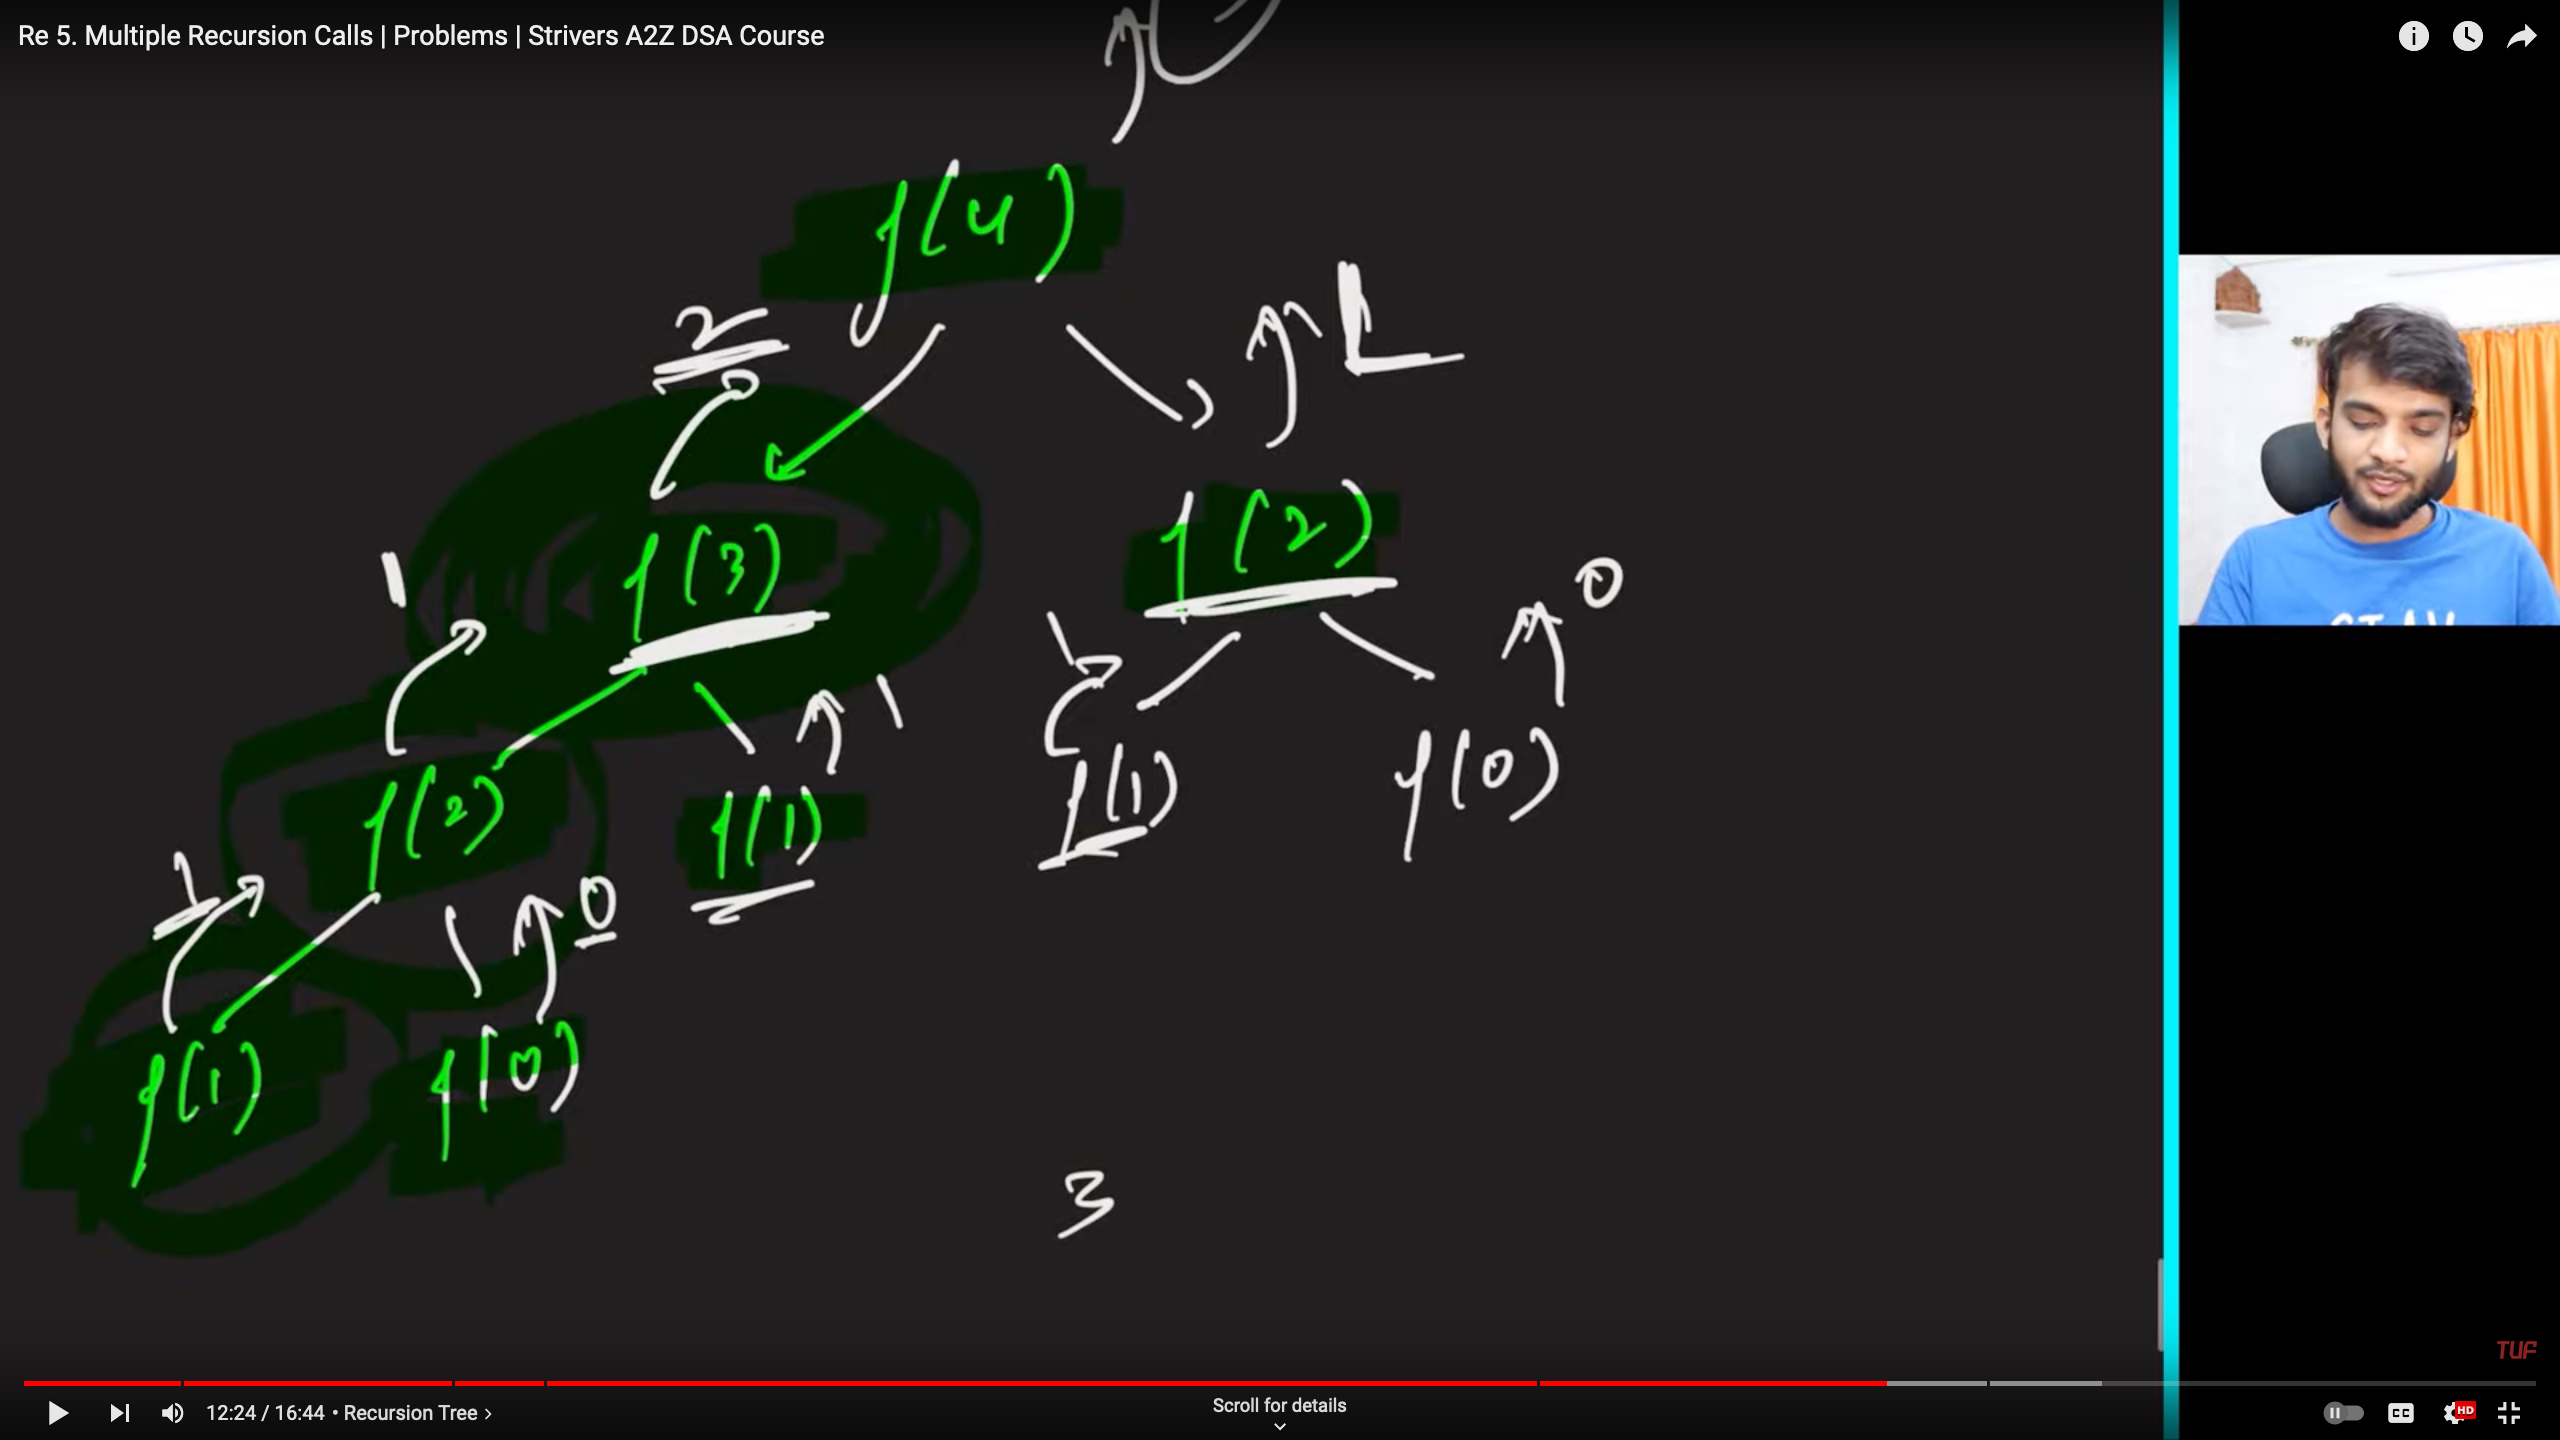 Re 5. Multiple Recursion Calls | Problems | Strivers A2Z DSA Course
f(4)
2
1
f(3)
f(2)
0
1
1
1
f(2)
f(1)
f(1)
f(0)
1
0
f(1)
f(0)
3
TUF
12:24 / 16:44 • Recursion Tree >
Scroll for details
CC
HD